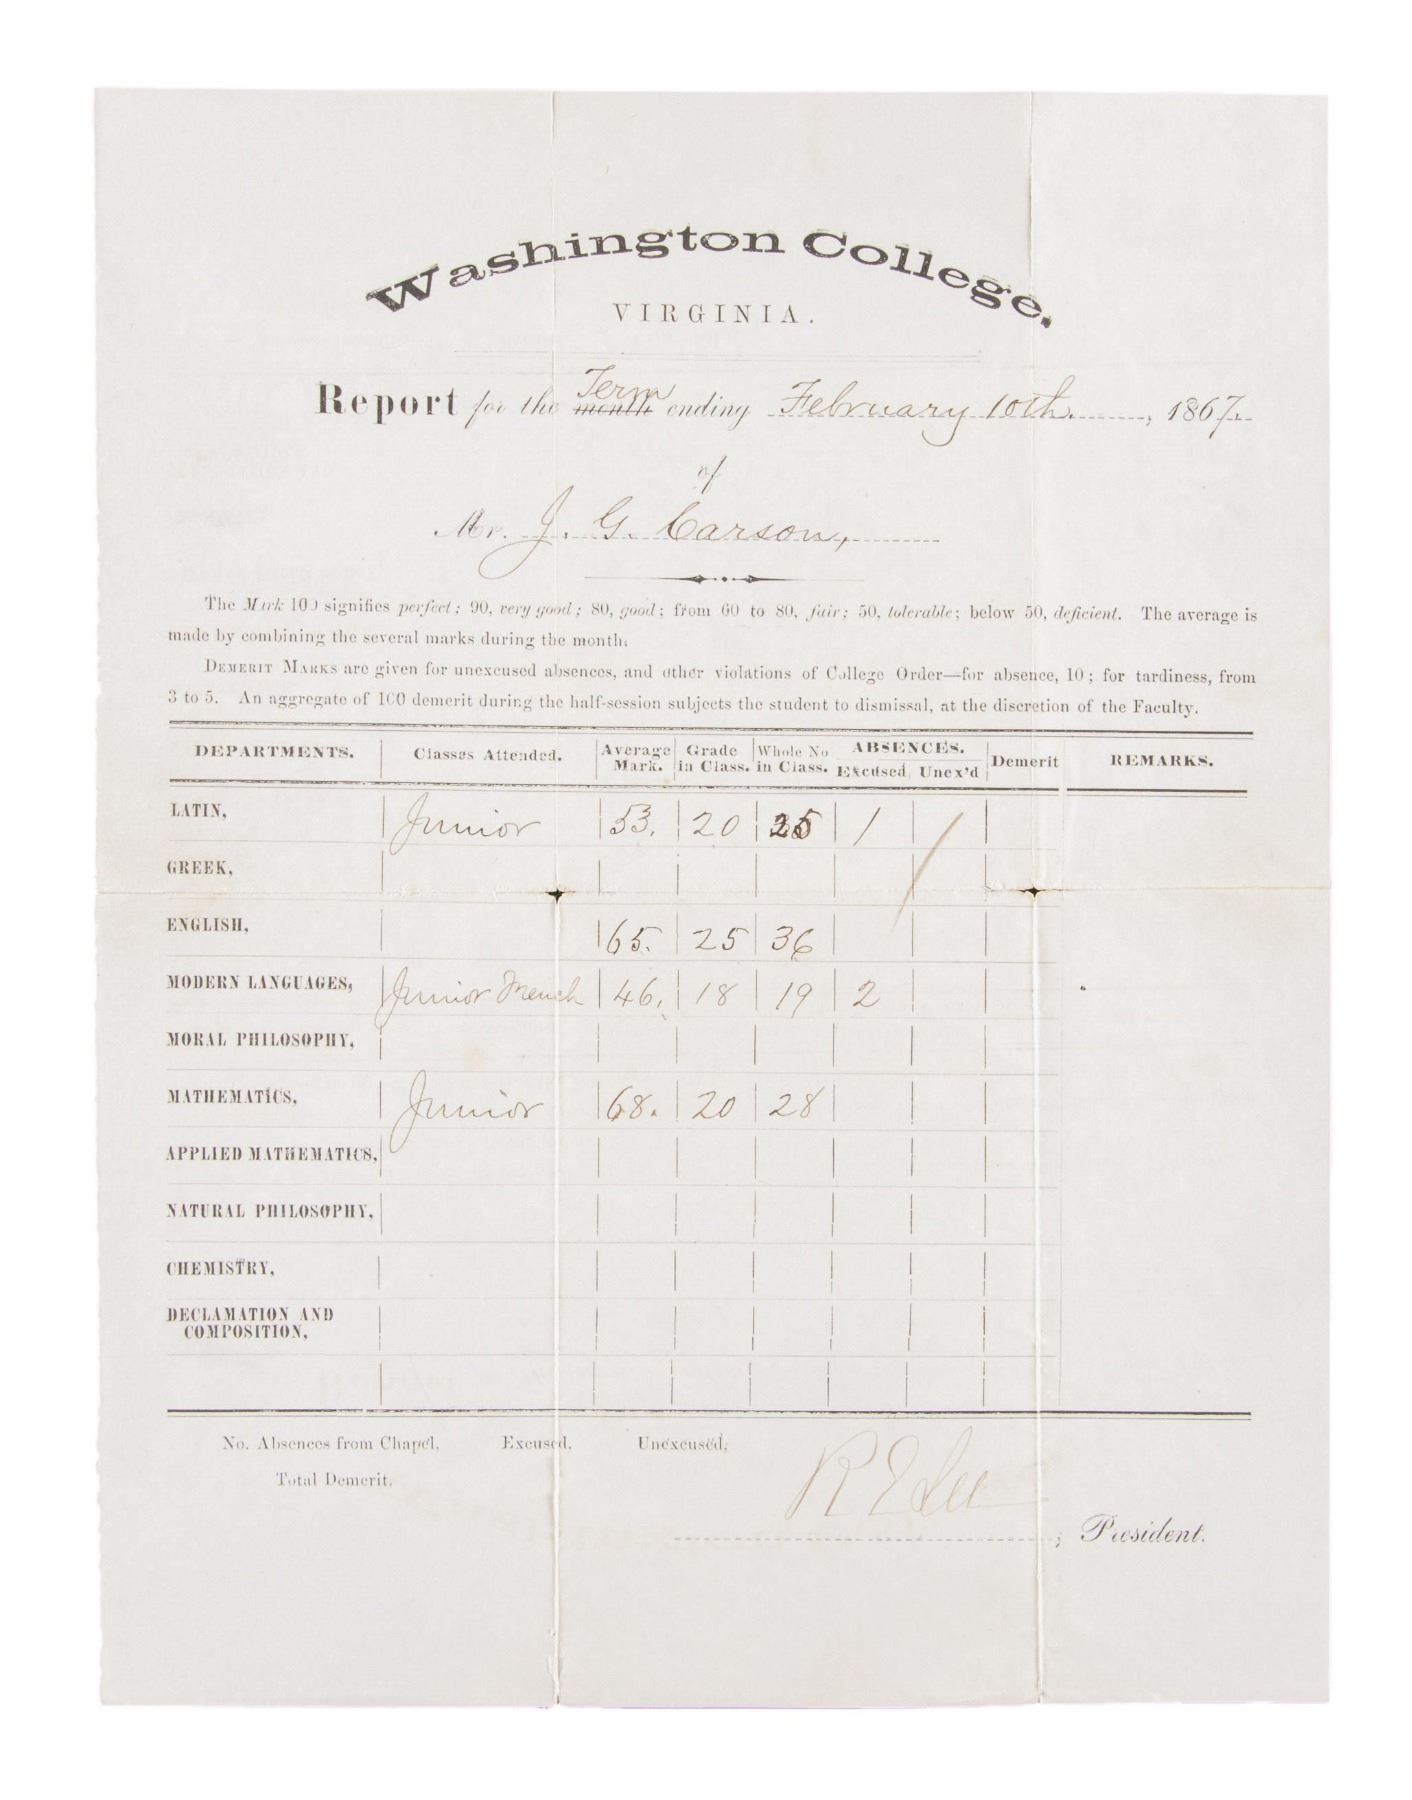 Washington College.
VIRGINIA.
Report for the month Term ending February 10th, 1867.
of
Mr. J. G. Carson,
The Mark 100 signifies perfect; 90, very good; 80, good; from 60 to 80, fair; 50, tolerable; below 50, deficient. The average is
made by combining the several marks during the month.
DEMERIT MARKS are given for unexcused absences, and other violations of College Order—for absence, 10; for tardiness, from
3 to 5. An aggregate of 100 demerit during the half-session subjects the student to dismissal, at the discretion of the Faculty.
DEPARTMENTS. Classes Attended. Average Mark. Grade in Class. Whole No in Class. ABSENCES. Excused Unex'd Demerit REMARKS.
LATIN, Junior 53. 20 25 1 1
GREEK,
ENGLISH, 65. 25 36
MODERN LANGUAGES, Junior French 46. 18 19 2
MORAL PHILOSOPHY,
MATHEMATICS, Junior 68. 20 28
APPLIED MATHEMATICS,
NATURAL PHILOSOPHY,
CHEMISTRY,
DECLAMATION AND
COMPOSITION,
No. Absences from Chapel. Excused. Unexcused;
Total Demerit.
R E Lee
, President.